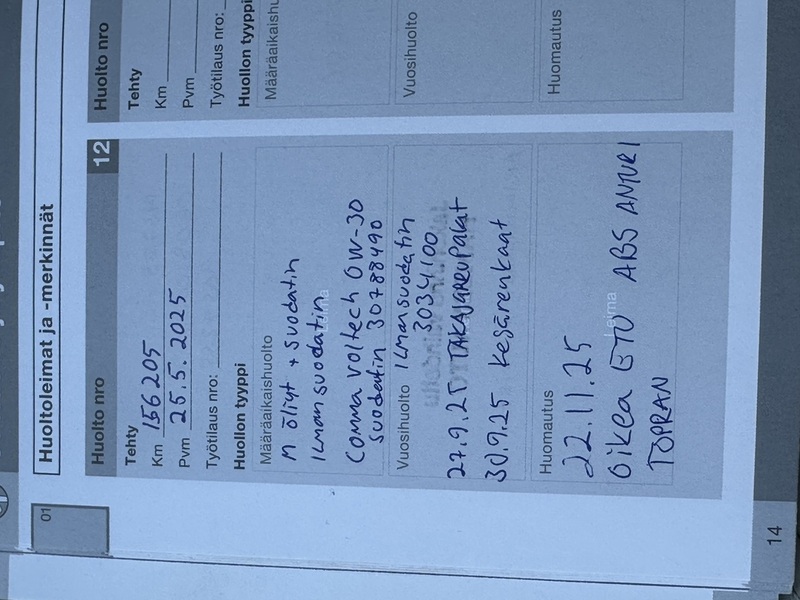 01
Huoltoleimat ja -merkinnät
Huolto nro 12
Tehty
Km 156205
Pvm 25.5.2025
Työtilaus nro:
Huollon tyyppi
Määräaikaishuolto
M öliyt + suodatin
Ilman suodatin
Comma Voltech 0W-30
suodatin 30788490
Vuosihuolto Ilman suodatin
3034100
27.9.25 TAKAJARRUPalat
30.9.25 Kesärenkaat
Huomautus
Leima
22.11.25
Oikea ETU ABS ANTURI
TOPRAN
Huolto nro
Tehty
Km
Pvm
Työtilaus nro:
Huollon tyyppi
Määräaikaishu
Vuosihuolto
Huomautus
14